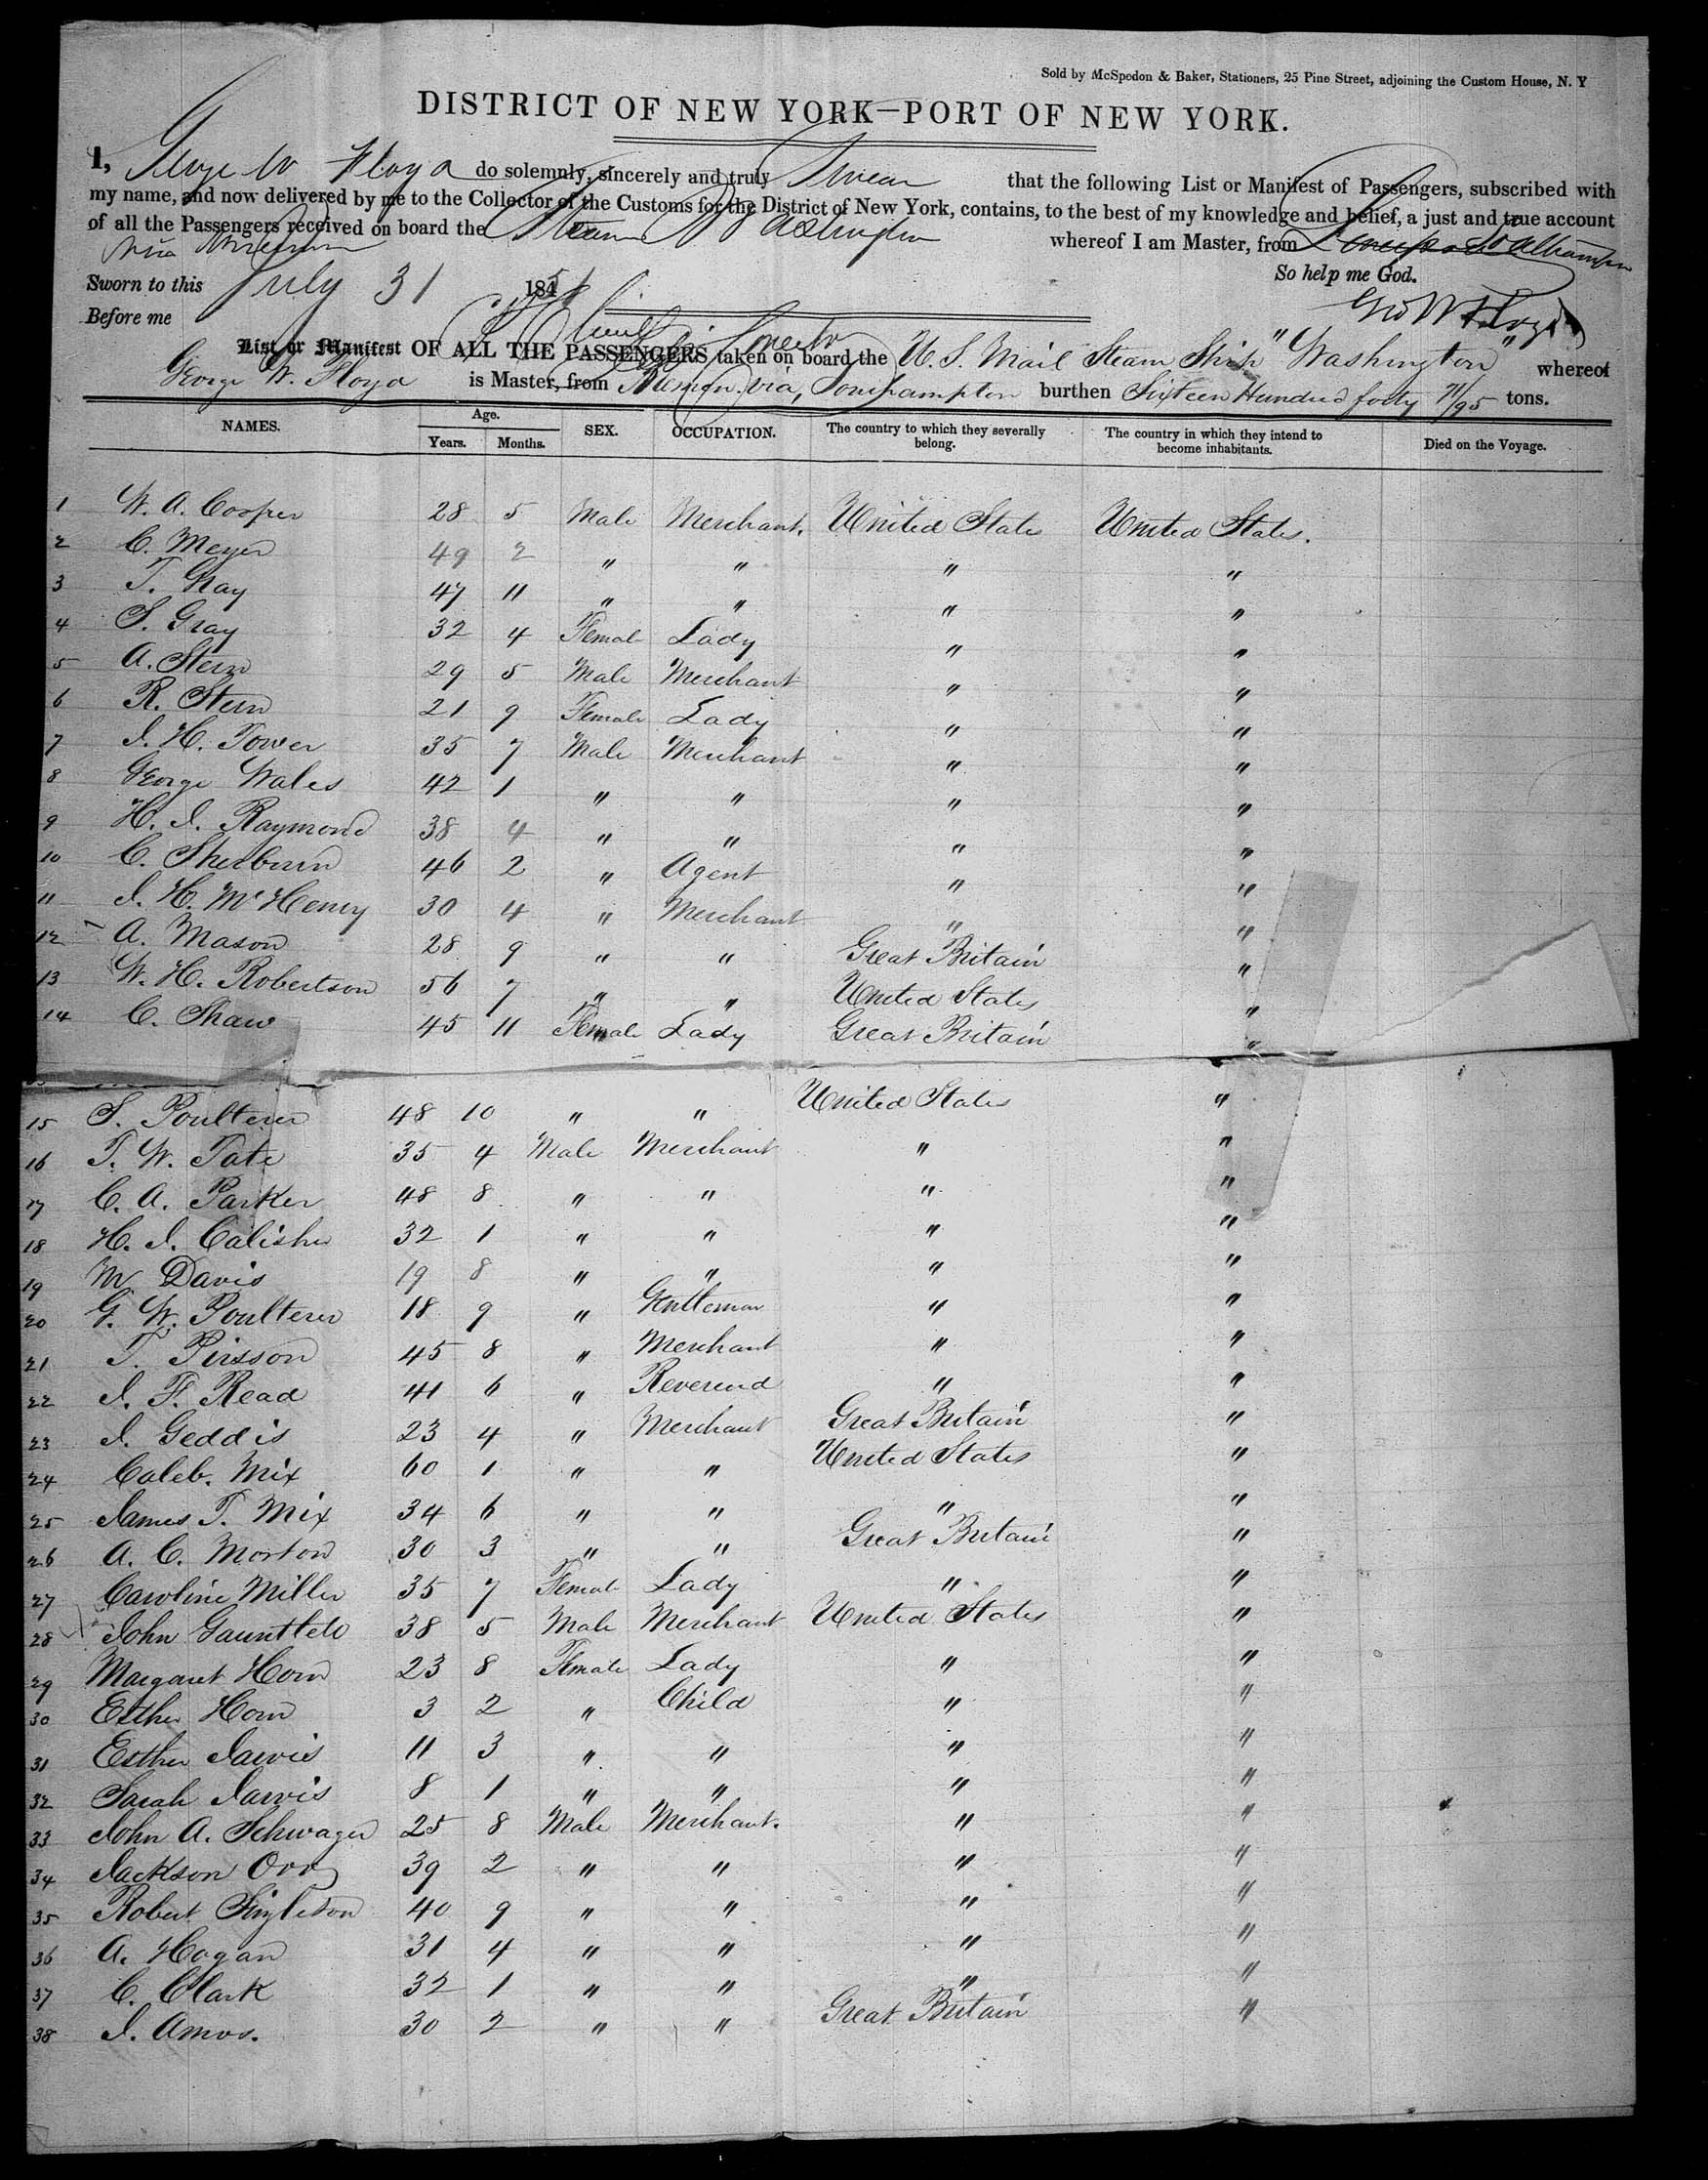 Sold by McSpedon & Baker, Stationers, 25 Pine Street, adjoining the Custom House, N. Y
DISTRICT OF NEW YORK—PORT OF NEW YORK.
I, George W Floyd do solemnly, sincerely and truly Swear that the following List or Manifest of Passengers, subscribed with
my name, and now delivered by me to the Collector of the Customs for the District of New York, contains, to the best of my knowledge and belief, a just and true account
of all the Passengers received on board the Steamer Washington whereof I am Master, from
So help me God.
Sworn to this July 31 1851
Geo W Floyd
Before me
List or Manifest OF ALL THE PASSENGERS taken on board the U. S. Mail Steam Ship "Washington" whereof
George W. Floyd is Master, from Bremen via, Southampton burthen Sixteen Hundred forty 71/95 tons.
NAMES. Age. Years. Months. SEX. OCCUPATION. The country to which they severally belong. The country in which they intend to become inhabitants. Died on the Voyage.
1 W. A. Cooper 28 5 Male Merchant. United States United States.
2 C. Meyer 49 2 " " " "
3 T. Gray 47 11 " " " "
4 S. Gray 32 4 Female Lady " "
5 A. Stern 29 5 Male Merchant " "
6 R. Stern 21 9 Female Lady " "
7 J. H. Tower 35 7 Male Merchant " "
8 George Wales 42 1 " " " "
9 H. J. Raymond 38 4 " " " "
10 C. Sherburn 46 2 " Agent " "
11 J. H. McHenry 30 4 " Merchant " "
12 A. Mason 28 9 " " Great Britain "
13 W. H. Robertson 56 7 " " United States "
14 C. Shaw 45 11 Female Lady Great Britain "
15 S. Poulterer 48 10 " " United States "
16 T. W. Tate 35 4 Male Merchant " "
17 C. A. Parker 48 8 " " " "
18 H. J. Calisher 32 1 " " " "
19 M Davis 19 8 " " " "
20 G. W. Poulterer 18 9 " Gentleman " "
21 T. Pirsson 45 8 " Merchant " "
22 J. F. Read 41 6 " Reverend " "
23 J. Geddis 23 4 " Merchant Great Britain "
24 Caleb. Mix 60 1 " " United States "
25 James T. Mix 34 6 " " " "
26 A. C. Morton 30 3 " " Great Britain "
27 Caroline Miller 35 7 Female Lady " "
28 John Gauntlett 38 5 Male Merchant United States "
29 Margaret Horn 23 8 Female Lady " "
30 Esther Horn 3 2 " Child " "
31 Esther Jarvis 11 3 " " " "
32 Sarah Jarvis 8 1 " " " "
33 John A. Schwager 25 8 Male Merchant. " "
34 Jackson Orr 39 2 " " " "
35 Robert Singleton 40 9 " " " "
36 A. Hogan 31 4 " " " "
37 C. Clark 32 1 " " " "
38 J. Amos. 30 2 " " Great Britain "